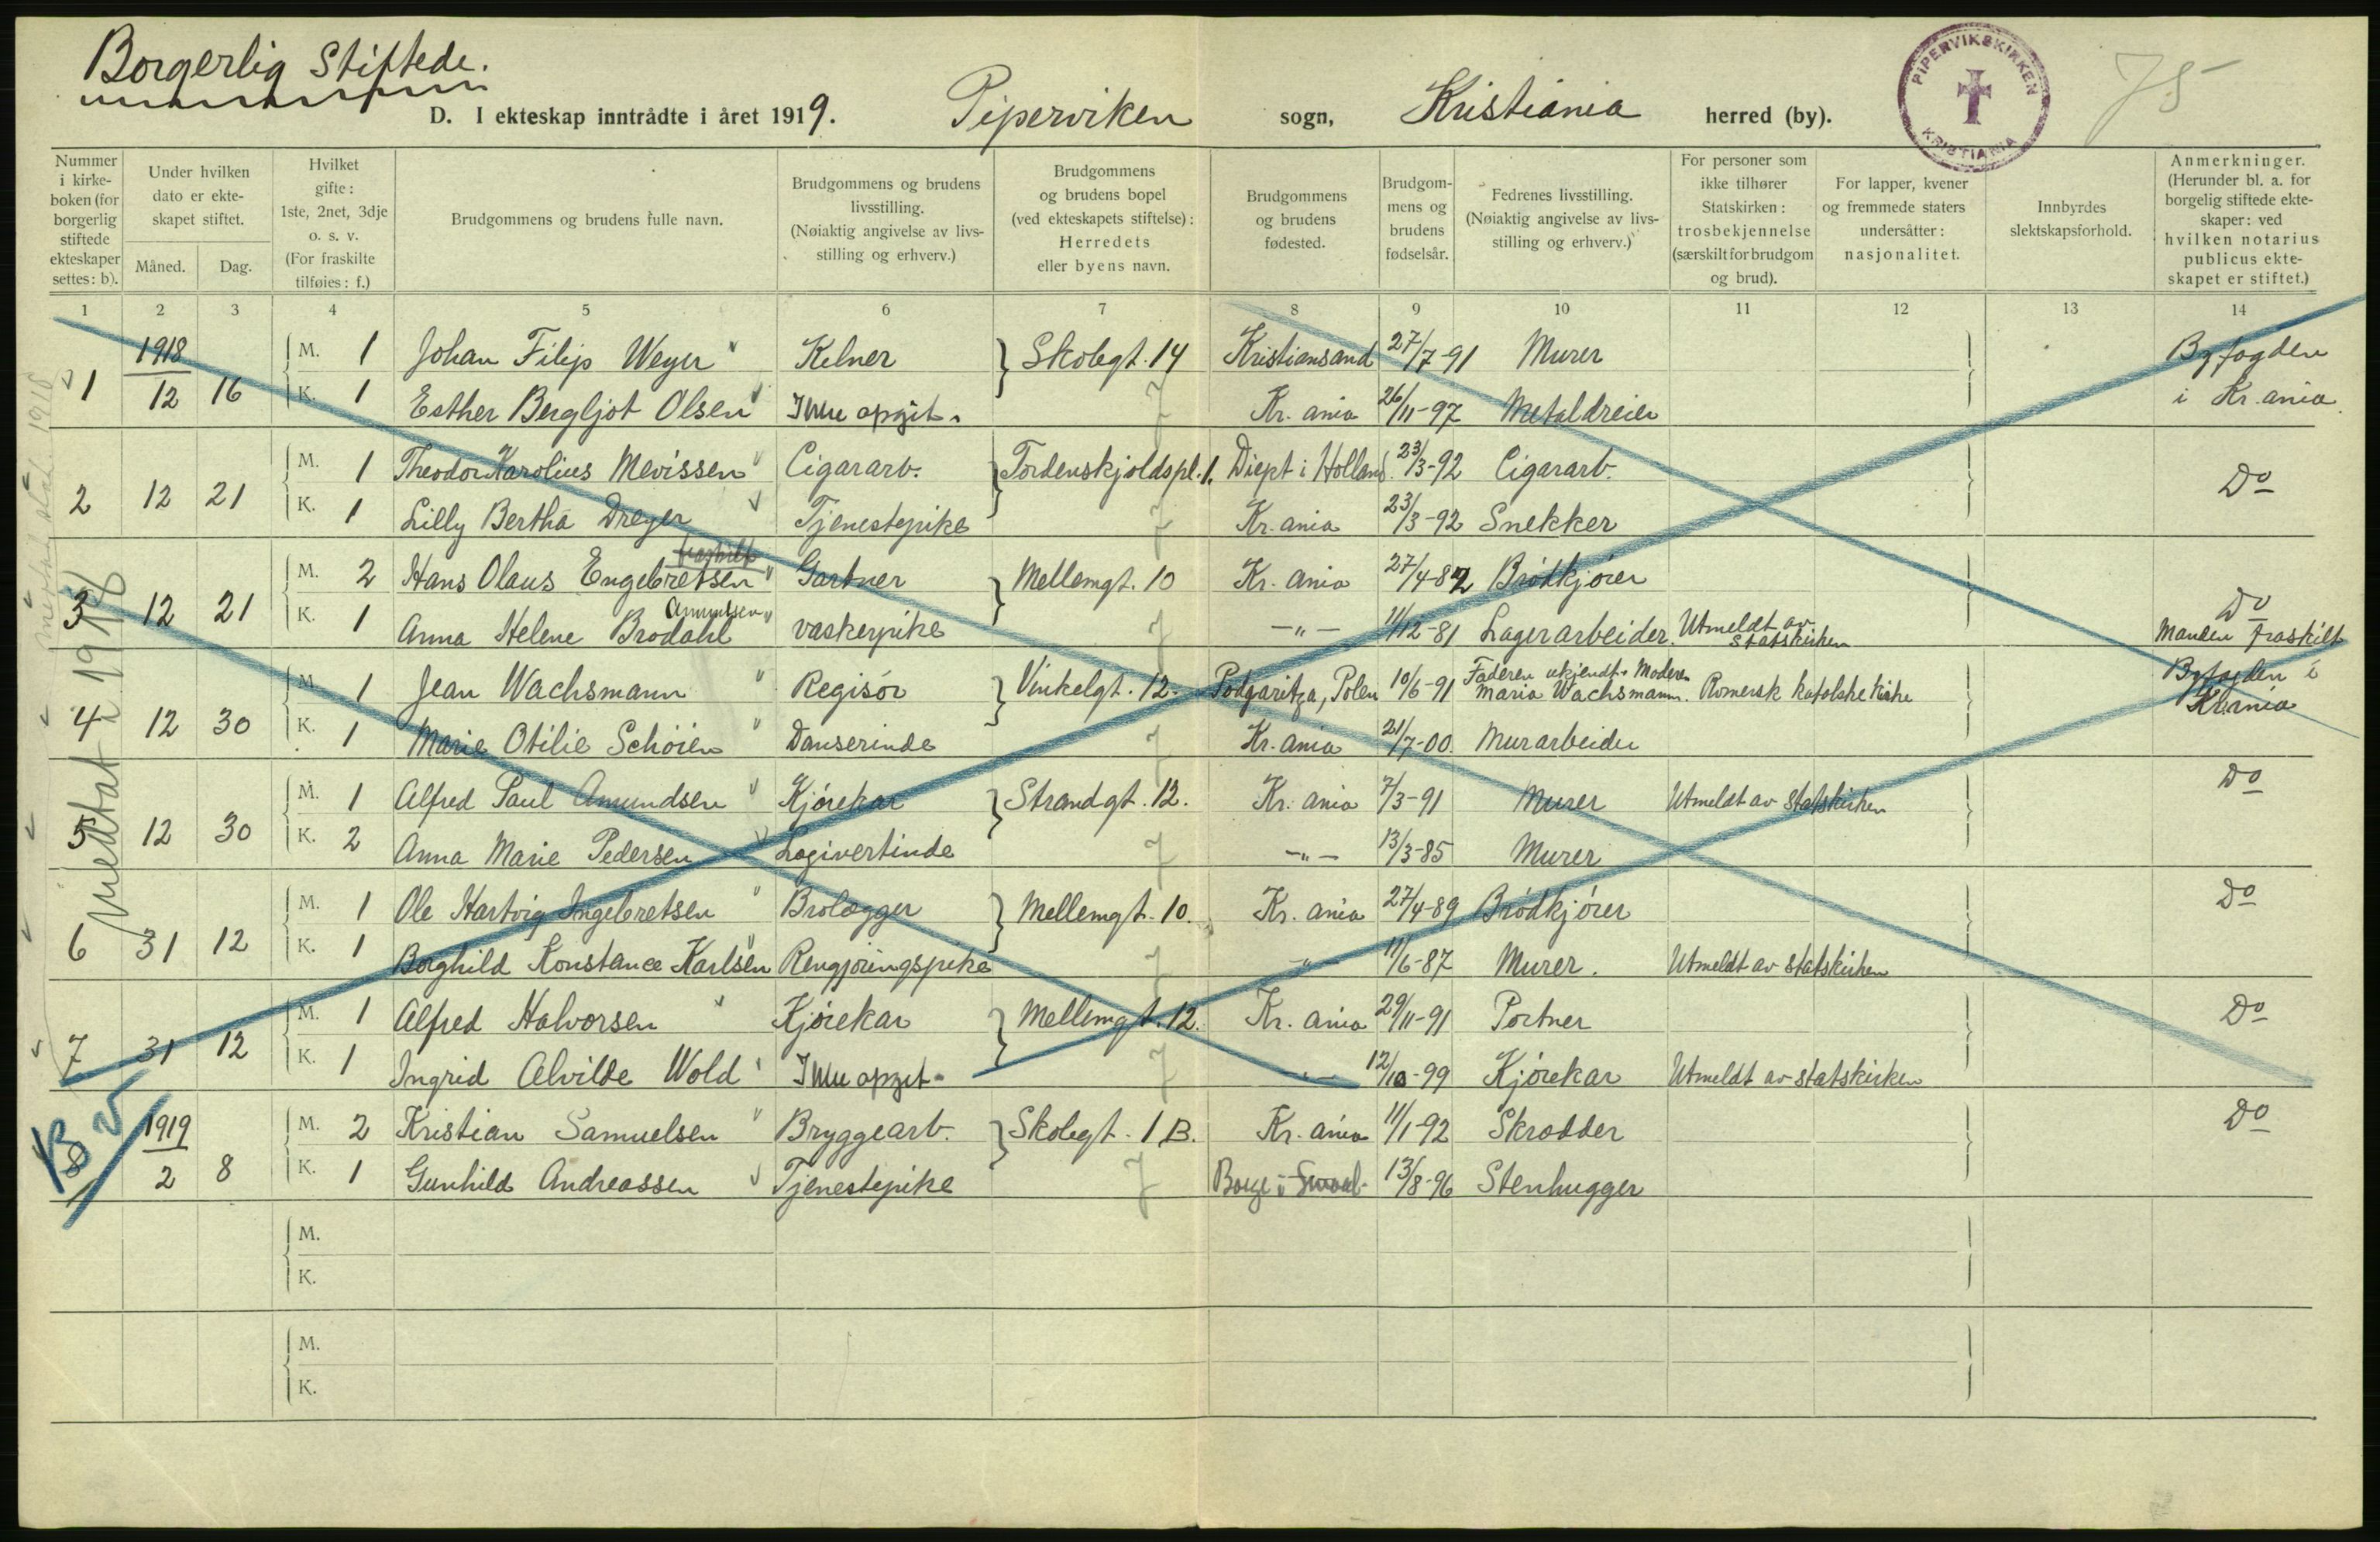 Borgerlig Stiftede.
D. I ekteskap inntrådte i året 1919. Piperviken sogn, Kristiania herred (by).
PIPERVIKSKIRKEN KRISTIANIA
75
Nummer i kirke-boken (for borgerlig stiftede ekteskaper settes: b).
Under hvilken dato er ekte-skapet stiftet.
Måned. Dag.
Hvilket gifte: 1ste, 2net, 3dje o. s. v. (For fraskilte tilføies: f.)
Brudgommens og brudens fulle navn.
Brudgommens og brudens livsstilling. (Nøiaktig angivelse av livs-stilling og erhverv.)
Brudgommens og brudens bopel (ved ekteskapets stiftelse): Herredets eller byens navn.
Brudgommens og brudens fødested.
Brudgom-mens og brudens fødselsår.
Fedrenes livsstilling. (Nøiaktig angivelse av livs-stilling og erhverv.)
For personer som ikke tilhører Statskirken: trosbekjennelse (særskilt for brudgom og brud).
For lapper, kvener og fremmede staters undersåtter: nasjonalitet.
Innbyrdes slektskapsforhold.
Anmerkninger. (Herunder bl. a. for borgelig stiftede ekte-skaper: ved hvilken notarius publicus ekte-skapet er stiftet.)
1 2 3 4 5 6 7 8 9 10 11 12 13 14
1918
M. 1 Johan Filip Weyer Kelner Skolegt. 14 Kristiansand 27/7-91 Murer Byfogden
1 12 16
K. 1 Esther Bergljot Olsen Ikke opgit. Kr. ania 26/11-97 Metaldreier i Kr. ania
M. 1 Theodor Karolius Mevissen Cigararb. Tordenskjoldspl. 1. Diept i Holland 23/3-92 Cigararb.
2 12 21 Do
K. 1 Lilly Bertha Dreyer Tjenestepike Kr. ania 23/3-92 Snekker
fraskilt
M. 2 Hans Olaus Engebretsen Gartner Mellemgt. 10 Kr. ania 27/4-82 Brödkjörer
3 12 21 Do
Amundsen
K. 1 Anna Helene Brodahl vaskerpike -"- 11/12-81 Lagerarbeider. Utmeldt av statskirken Manden fraskilt
M. 1 Jean Wachsmann Regisör Vinkelgt. 12. Podgaritza, Polen 10/6-91 Faderen ukjendt. Moderen Maria Wachsmann. Romersk katolske kirke Byfogden i Kr. ania
4 12 30
K. 1 Marie Otilie Schöien Danserinde Kr. ania 21/7-00. Murarbeider
M. 1 Alfred Paul Amundsen Kjörekar Strandgt. 12. Kr. ania 7/3-91 Murer Utmeldt av statskirken Do
5 12 30
K. 2 Anna Marie Pedersen Logivertinde -"- 13/3-85 Murer
M. 1 Ole Hartvig Ingebretsen Brolægger Mellemgt. 10. Kr. ania 27/4-89 Brödkjörer Do
6 31 12
K. 1 Borghild Konstance Karlsen Rengjöringspike -"- 11/6-87 Murer. Utmeldt av statskirken
M. 1 Alfred Halvorsen Kjörekar Mellemgt. 12. Kr. ania 29/11-91 Portner Do
7 31 12
K. 1 Ingrid Alvilde Wold Ikke opgit. -"- 12/10-99 Kjörekar Utmeldt av statskirken
1919
M. 2 Kristian Samuelsen Bryggearb. Skolegt. 1 B. Kr. ania 11/1-92 Skrædder Do
8 2 8
K. 1 Gunhild Andreassen Tjenestepike Borge i 13/8-96 Stenhugger
M.
K.
M.
K.
medtat 1918
B